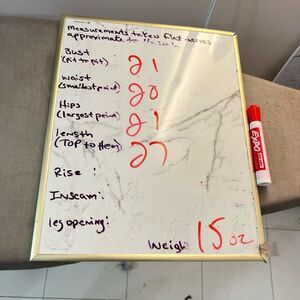 measurements taken flat across
approximate to
Bust
(Pit to pit) : 21
Waist
(smallest point) : 20
Hips
(largest point) : 21
Length
(TOP to Hem) : 27
Rise :
Inseam :
leg opening :
Weigh: 15 oz
EXPO